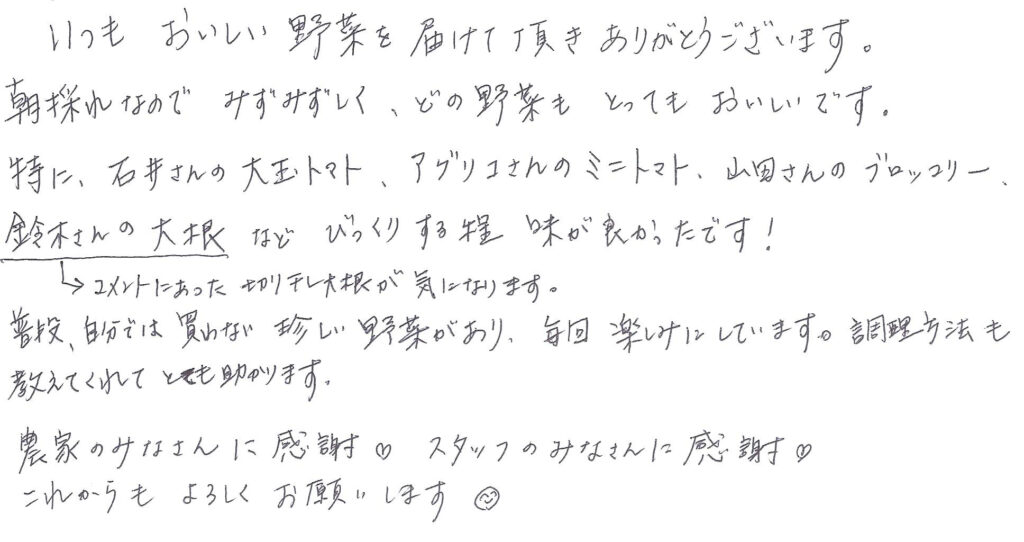 いつも おいしい 野菜を 届けて 頂き ありがとうございます。
朝採れなので みずみずしく、どの野菜も とっても おいしいです。
特に、石井さんの大玉トマト、アグリコさんのミニトマト、山田さんのブロッコリー、
鈴木さんの大根 など びっくりする程 味が良かったです!
→コメントにあった 切り干し大根が 気になります。
普段、自分では 買わない 珍しい 野菜があり、毎回 楽しみにしています。調理方法も
教えてくれて とても助かります。
農家のみなさんに 感謝♡ スタッフのみなさんに 感謝♡
これからも よろしく お願いします☺